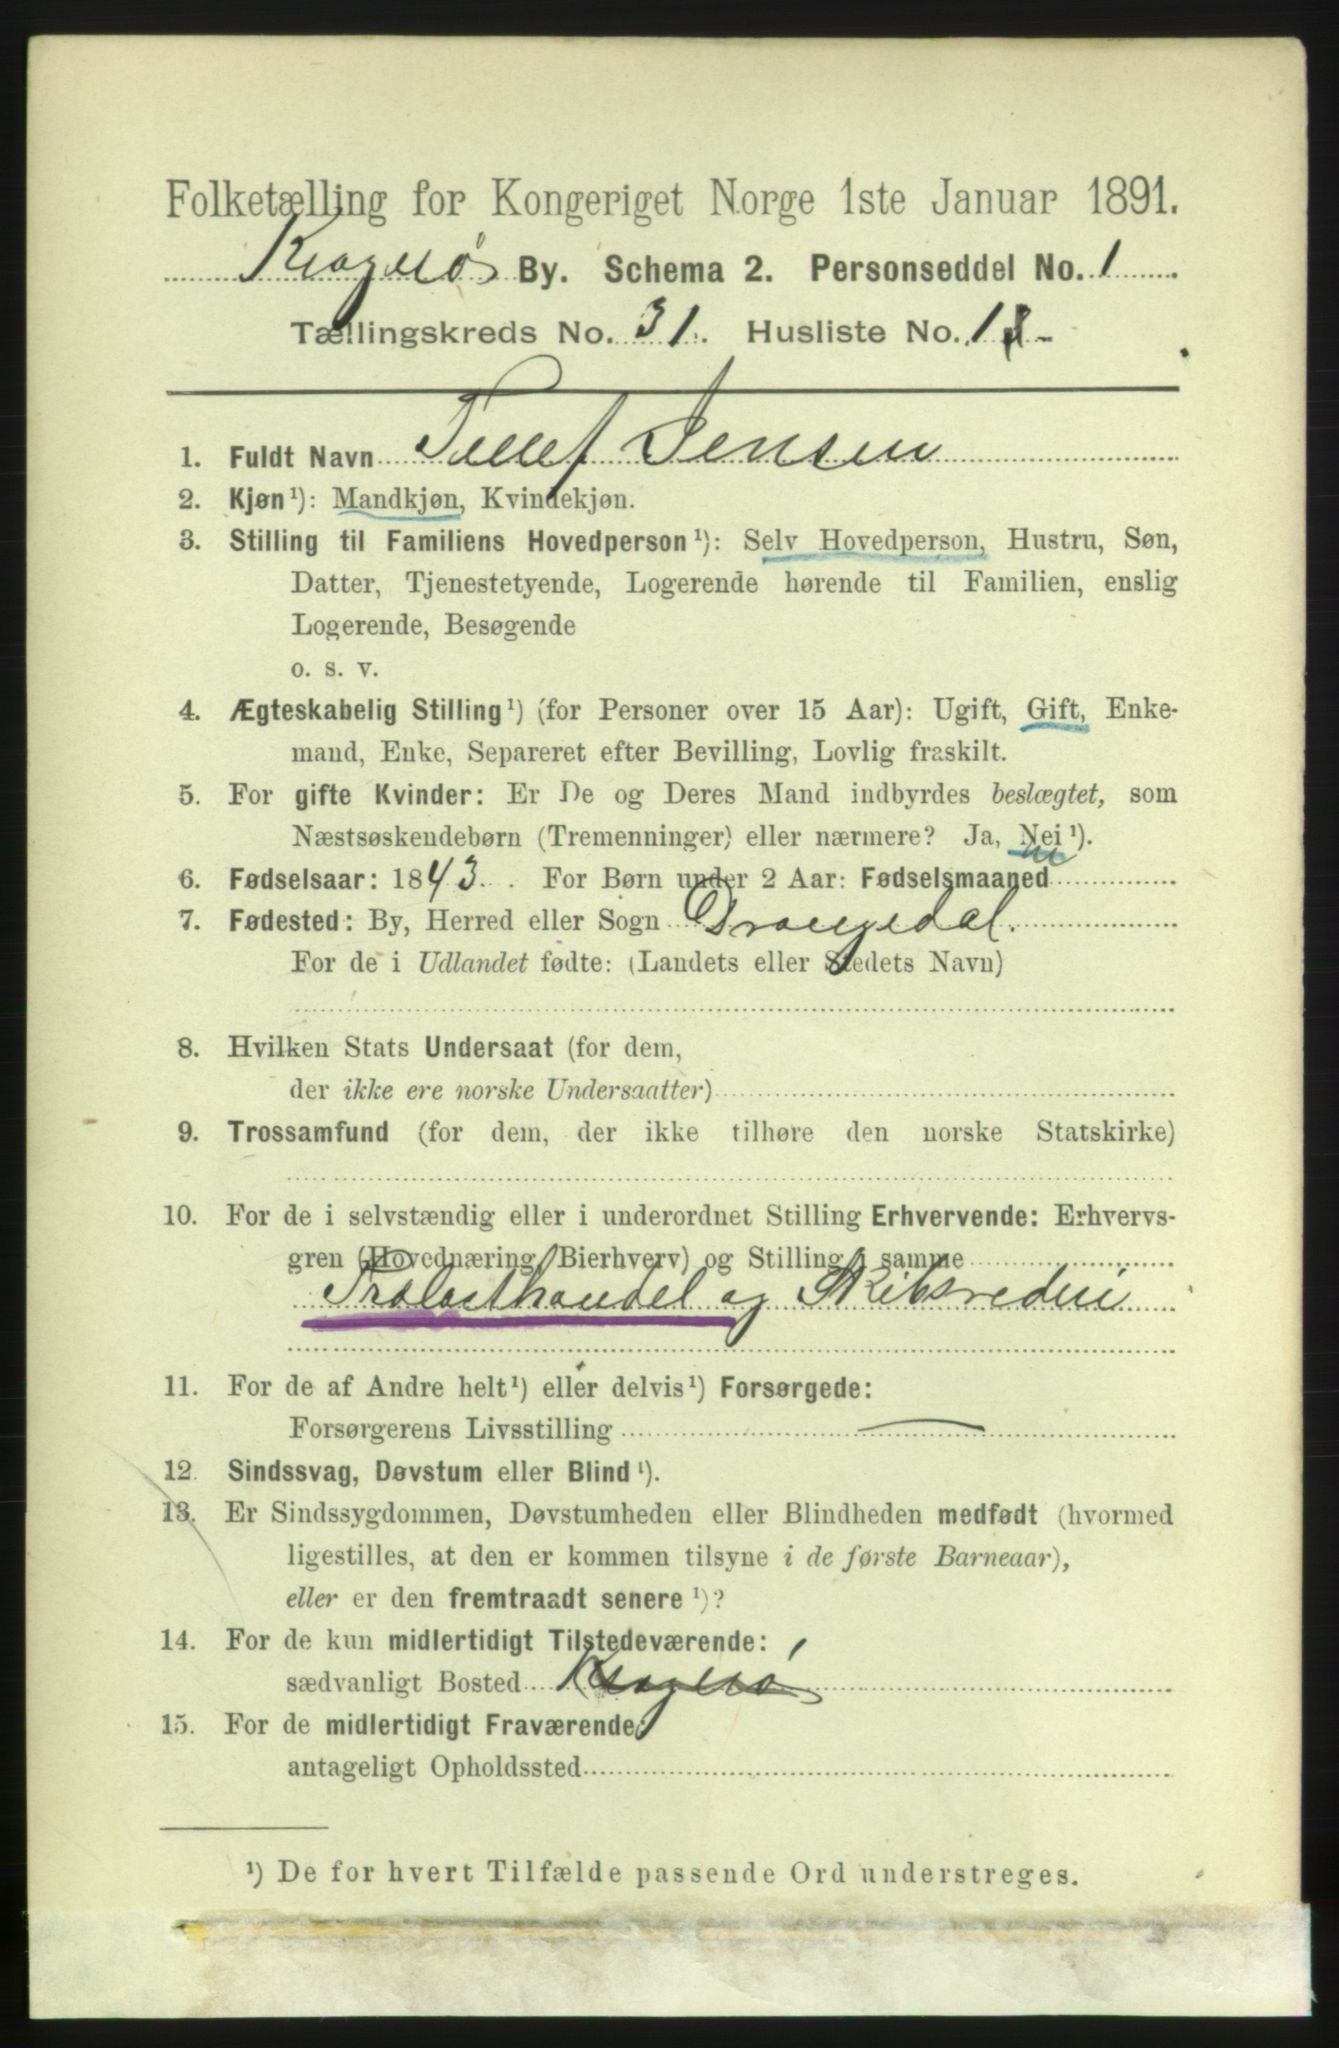 Folketælling for Kongeriget Norge 1ste Januar 1891.
Kragerø By. Schema 2. Personseddel No. 1
Tællingskreds No. 31. Husliste No. 1
1. Fuldt Navn Tellef Jensen
2. Kjøn ¹): Mandkjøn, Kvindekjøn.
3. Stilling til Familiens Hovedperson ¹): Selv Hovedperson, Hustru, Søn,
Datter, Tjenestetyende, Logerende hørende til Familien, enslig
Logerende, Besøgende
o. s. v.
4. Ægteskabelig Stilling ¹) (for Personer over 15 Aar): Ugift, Gift, Enke-
mand, Enke, Separeret efter Bevilling, Lovlig fraskilt.
5. For gifte Kvinder: Er De og Deres Mand indbyrdes beslægtet, som
Næstsøskendebørn (Tremenninger) eller nærmere? Ja, Nei ¹).
6. Fødselsaar: 1843. For Børn under 2 Aar: Fødselsmaaned
7. Fødested: By, Herred eller Sogn Drangedal.
For de i Udlandet fødte: (Landets eller Stedets Navn)
8. Hvilken Stats Undersaat (for dem,
der ikke ere norske Undersaatter)
9. Trossamfund (for dem, der ikke tilhøre den norske Statskirke)
10. For de i selvstændig eller i underordnet Stilling Erhvervende: Erhvervs-
gren (Hovednæring, Bierhverv) og Stilling i samme
Trælasthandel og Skibsrederi
11. For de af Andre helt ¹) eller delvis ¹) Forsørgede:
Forsørgerens Livsstilling
12. Sindssvag, Døvstum eller Blind ¹).
13. Er Sindssygdommen, Døvstumheden eller Blindheden medfødt (hvormed
ligestilles, at den er kommen tilsyne i de første Barneaar),
eller er den fremtraadt senere ¹)?
14. For de kun midlertidigt Tilstedeværende:
sædvanligt Bosted Kragerø
15. For de midlertidigt Fraværende:
antageligt Opholdssted
¹) De for hvert Tilfælde passende Ord understreges.